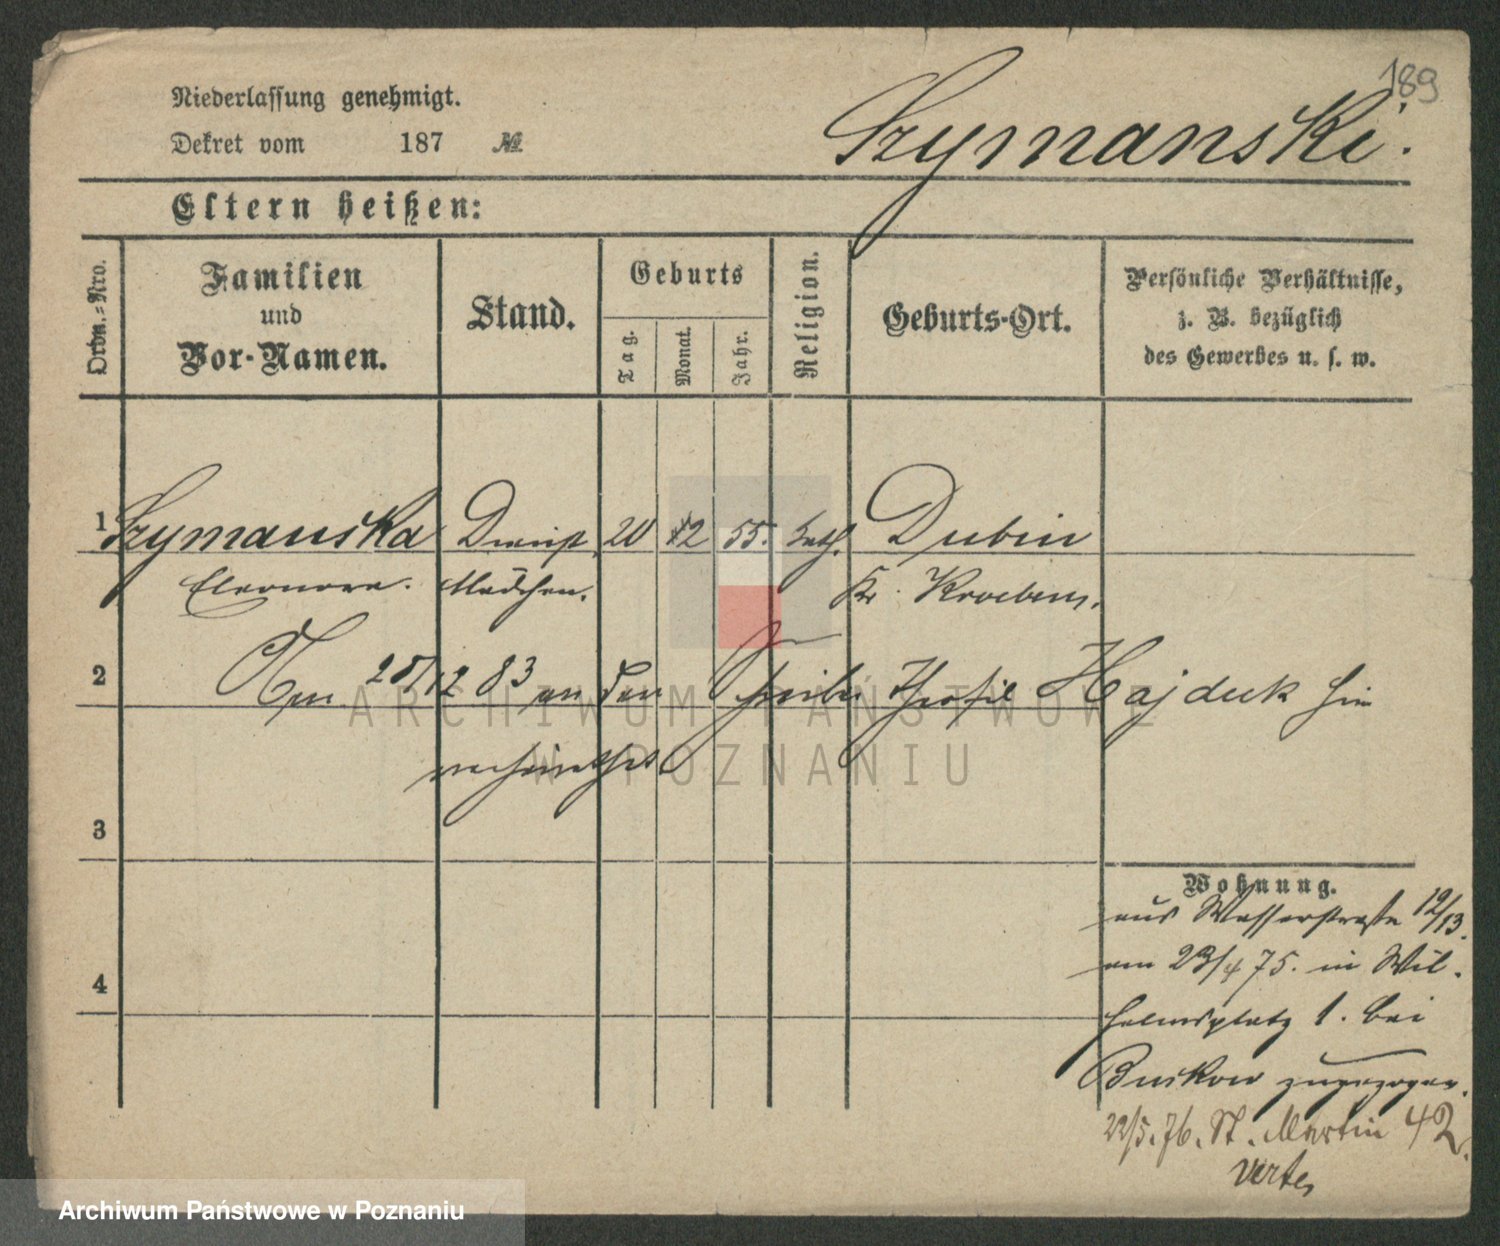 189
Niederlassung genehmigt.
Szymanski.
Dekret vom 187 №
Eltern heißen:
Ordn.-Nro.
Familien
und
Vor-Namen.
Stand.
Geburts
Tag.
Monat.
Jahr.
Religion.
Geburts-Ort.
Persönliche Verhältnisse,
z. B. bezüglich
des Gewerbes u. s. w.
1 Szymanska Dienst 20 12 55. kath. Dubin
Eleonora. Mädchen. Kr. Kroeben.
2 Am 25/12 83 an den Theofil Hajduk hier
verheirathet.
ARCHIWUM PAŃSTWOWE
W POZNANIU
3
4
Wohnung.
aus Wasserstraße 12/13.
am 23/4 75. in Wil-
helmsplatz 1. bei
zugezogen.
22/5. 76. St. Martin 42.
verte,
Archiwum Państwowe w Poznaniu